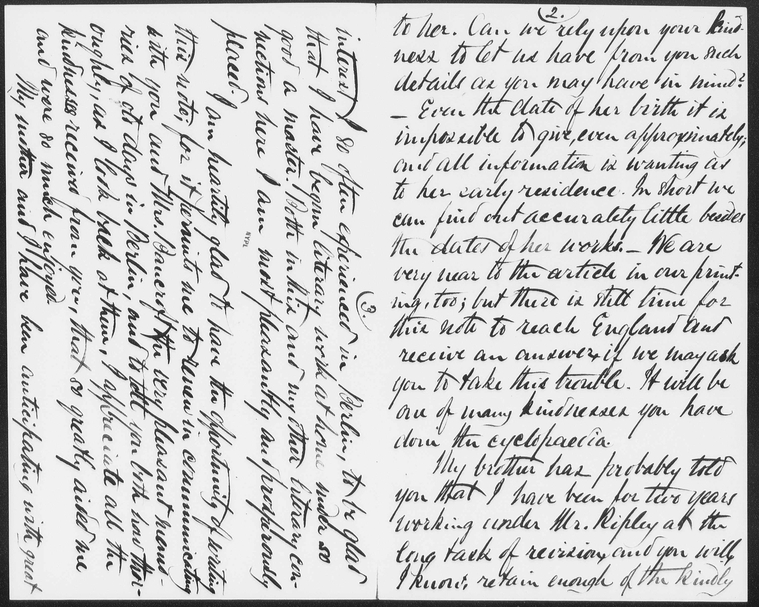 2.
to her. Can we rely upon your kind-
ness to let us have from you such
details as you may have in mind?
— Even the date of her birth it is
impossible to give, even approximately;
and all information is wanting as
to her early residence. In short we
can find out accurately little besides
the dates of her works. — We are
very near to the article in our print-
ing, too; but there is still time for
this note to reach England and
receive an answer, if we may ask
you to take this trouble. It will be
one of many kindnesses you have
done the cyclopaedia.
My brother has probably told
you that I have been for two years
working under Mr. Ripley at the
long task of revision, and you will,
I know, retain enough of the kindly
3.
interest I so often experienced in Berlin, to be glad
that I have begun literary work at home under so
good a master. Both in his and my other literary con-
nections here I am most pleasantly and prosperously
placed.
I am heartily glad to have the opportunity of writing
this note, for it permits me to renew in communicating
with you and Mrs. Bancroft the very pleasant memo-
ries of old days in Berlin, and to tell you both how thor-
oughly, as I look back at them, I appreciate all the
kindnesses received from you, that so greatly aided me
and were so much enjoyed.
My mother and I have been anticipating with great